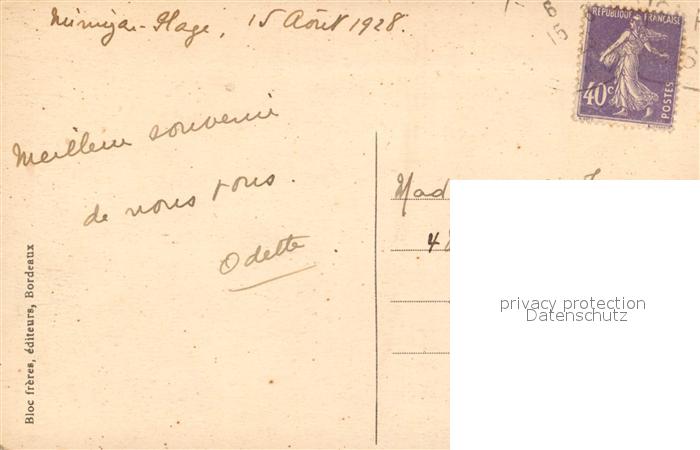 Mimizan-Plage, 15 Août 1928.
RÉPUBLIQUE FRANÇAISE
40c
POSTES
Meilleur souvenir
de nous tous.
Odette
Mad
48
privacy protection
Datenschutz
Bloc frères, éditeurs, Bordeaux